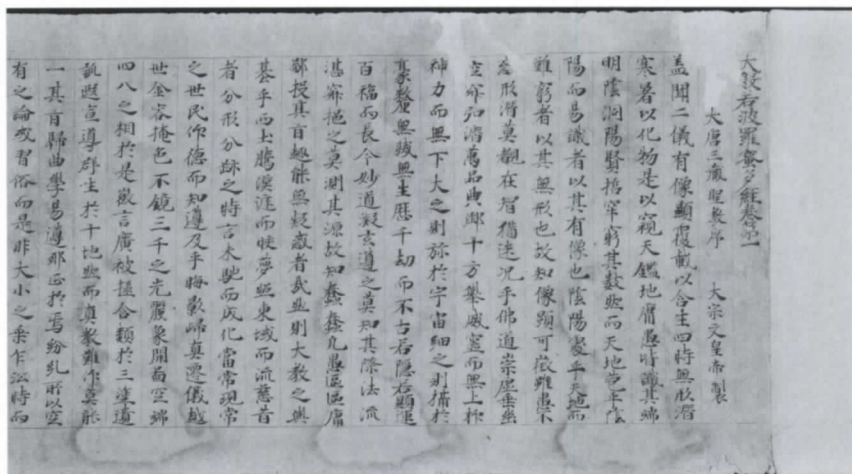 大般若波羅蜜多經卷第一
大唐三藏聖教序 大宗文皇帝製
蓋聞二儀有像顯覆載以含生四時無形潛
寒暑以化物是以窺天鑑地庸愚皆識其端
明陰洞陽賢哲罕窮其數然而天地苞乎陰
陽而易識者以其有像也陰陽處乎天地而
難窮者以其無形也故知像顯可徵雖愚不
惑形潛莫覩在智猶迷況乎佛道崇虛乘幽
控寂弘濟萬品典御十方舉威靈而無上抑
神力而無下大之則彌於宇宙細之則攝於
豪釐無滅無生歷千劫而不古若隱若顯運
百福而長今妙道凝玄遵之莫知其際法流
湛寂挹之莫測其源故知蠢蠢凡愚區區庸
鄙投其旨趣能無疑惑者哉然則大教之興
基乎西土騰漢庭而皎夢照東域而流慈昔
者分形分跡之時言未馳而成化當常現常
之世民仰德而知遵及乎晦影歸真遷儀越
世金容掩色不鏡三千之光麗象開圖空端
四八之相於是微言廣被拯含類於三塗遺
訓遐宣導群生於十地然而真教難仰莫能
一其旨歸曲學易遵邪正於焉紛糺所以空
有之論或習俗而是非大小之乘乍沿時而